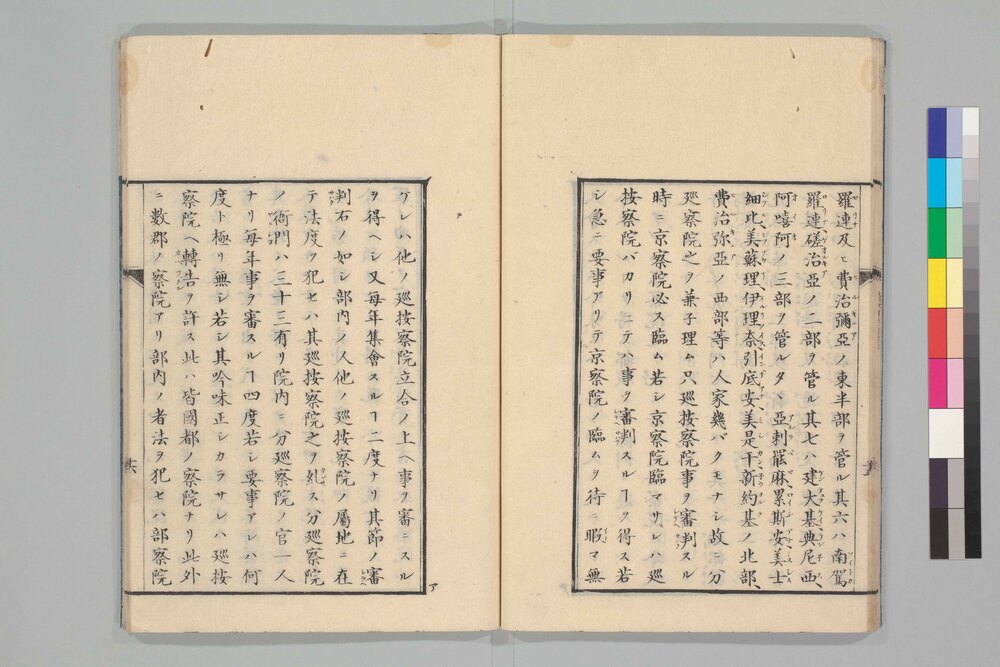 羅連及ヒ費治彌亞ノ東半部ヲ管ル其六ハ南駕
羅連磋治亞ノ二部ヲ管ル其七ハ建大基典尼西、
阿嘻阿ノ三部ヲ管ルタヽ亞剌罷麻累斯安美士
細比、美蘇理伊理奈引底安美是干新約基ノ北部、
費治弥亞ノ西部等ハ人家幾バクモナシ故ニ分
巡察院之ヲ兼子理ム只巡按察院事ヲ審判スル
時ニ京察院必ス臨ム若シ京察院臨マサレハ巡
按察院バカリニテハ事ヲ審判スルヿヲ得ス若
シ急ニ要事アリテ京察院ノ臨ムヲ待ニ暇マ無
ケレハ他ノ巡按察院立合ノ上ヘ事ヲ審ニスル
ヲ得ヘシ又每年集會スルヿ二度ナリ其節ノ審
判石ノ如シ部内ノ人他ノ巡按察院ノ屬地ニ在
テ法度ヲ犯セハ其巡按察院之ヲ糺ス分巡察院
ノ衙門ハ三十三有リ院内ニ分巡察院ノ官一人
ナリ每年事ヲ審スルヿ四度若シ要事アレハ何
度ト極リ無シ若シ其吟味正シカラサレハ巡按
察院ヘ轉告ヲ許ス此ハ皆國都ノ察院ナリ此外
ニ數郡ノ察院アリ部内ノ者法ヲ犯セハ部察院
十六